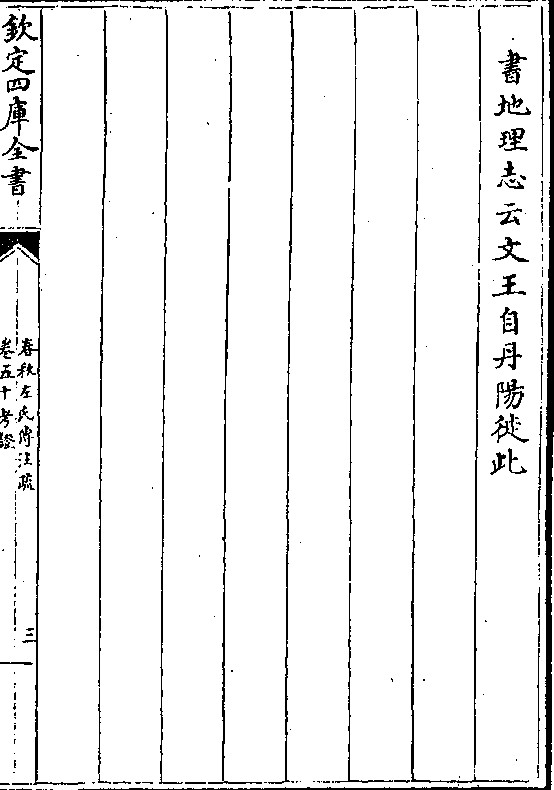 書地理志云文王自丹陽徙此
欽定四庫全書
春秋左氏傳注疏
卷五十考證
三